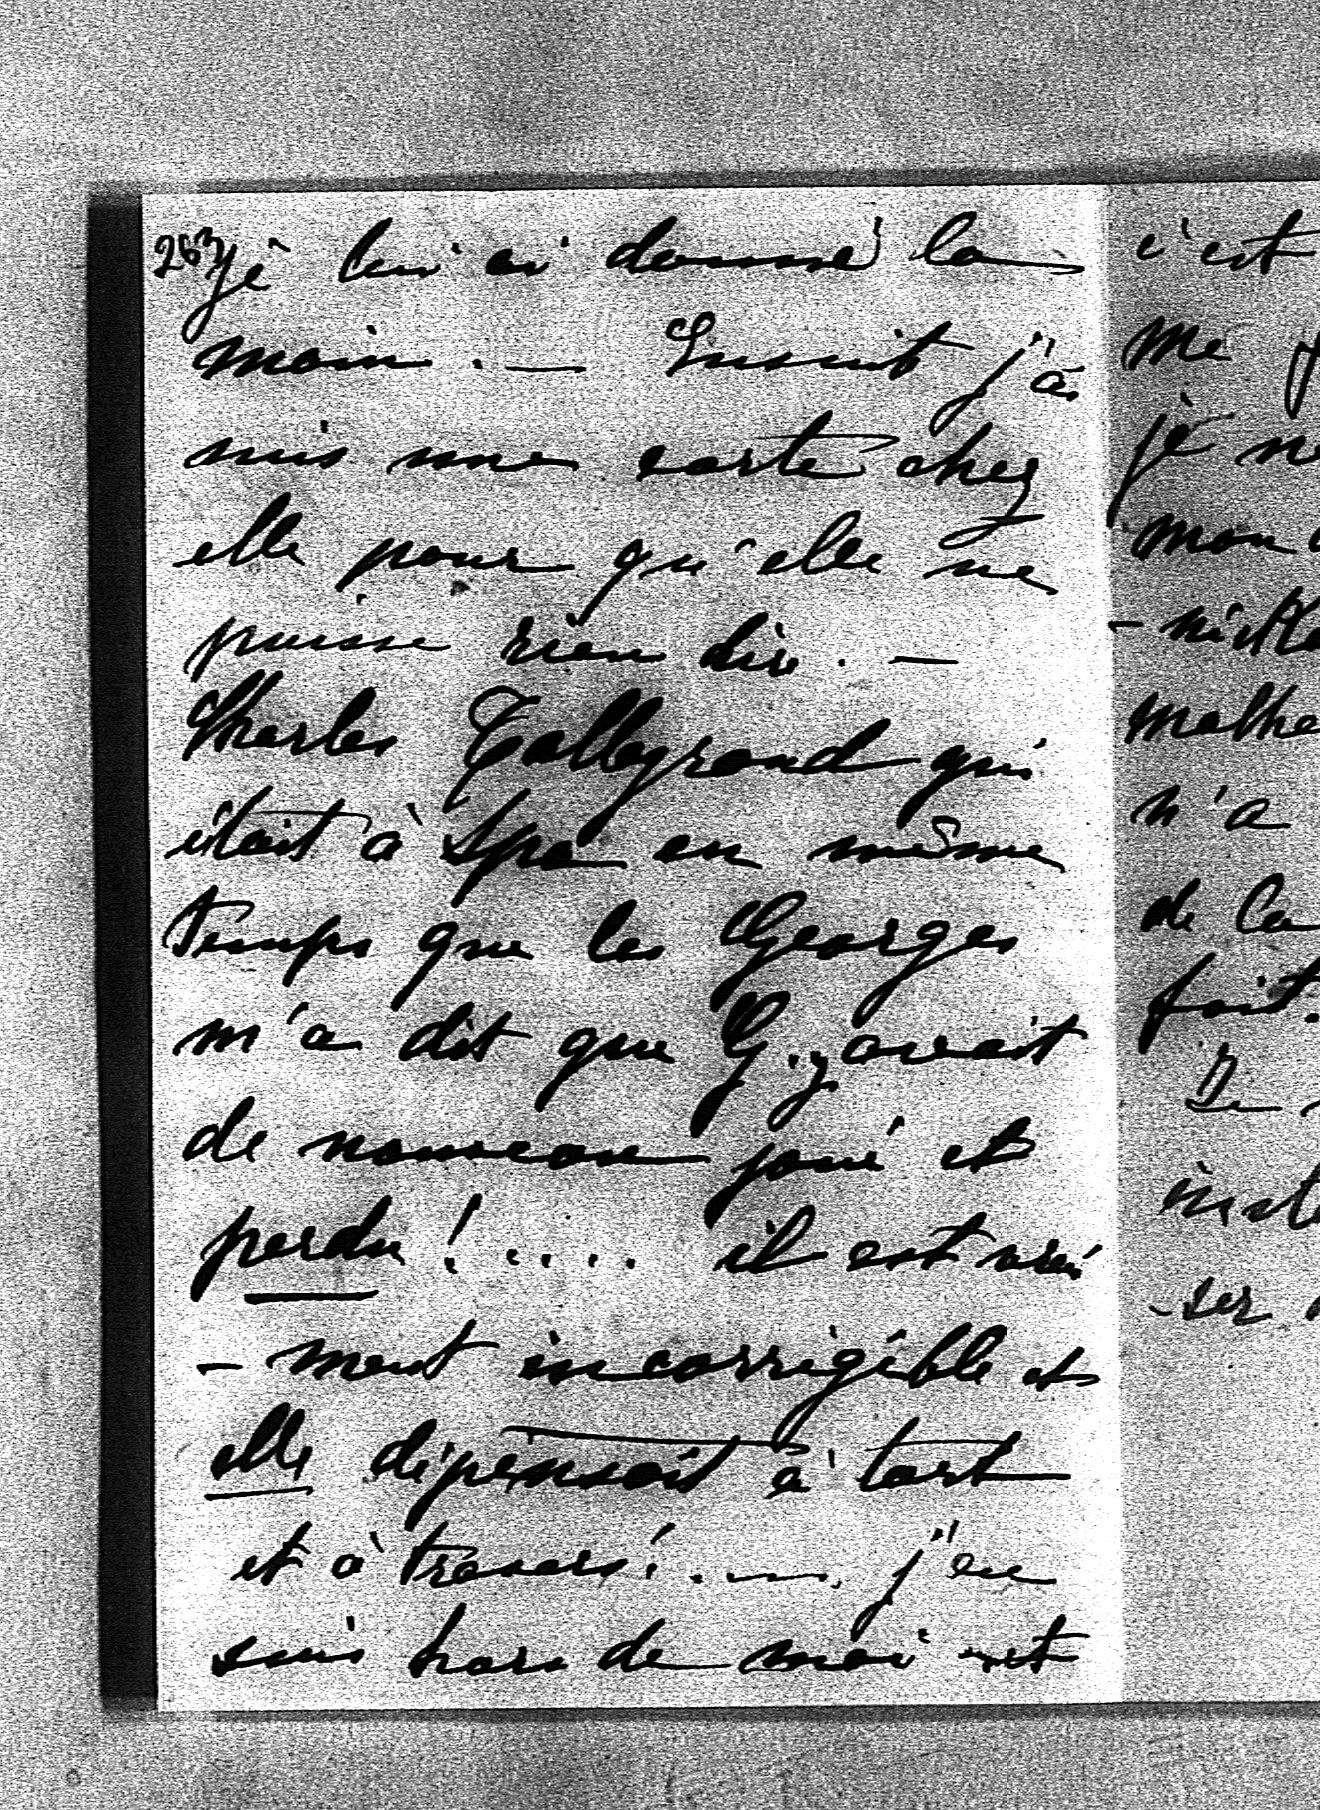 263
je lui ai donné la
main. — Ensuit j'ai
mis une carte chez
elle pour qu'elle ne
puisse rien dire. —
Charles Talleyrand qui
était à Spa en même
temps que les Georges
m'a dit que G. y avait
de nouveau joué et
perdu!.... il est vrai
- ment incorrigible et
elle dépensait à tort
et à travers!.... j'en
suis hors de moi et
c'est
me
je
mon
malhe
n'a
de la
fait.
De
- ser